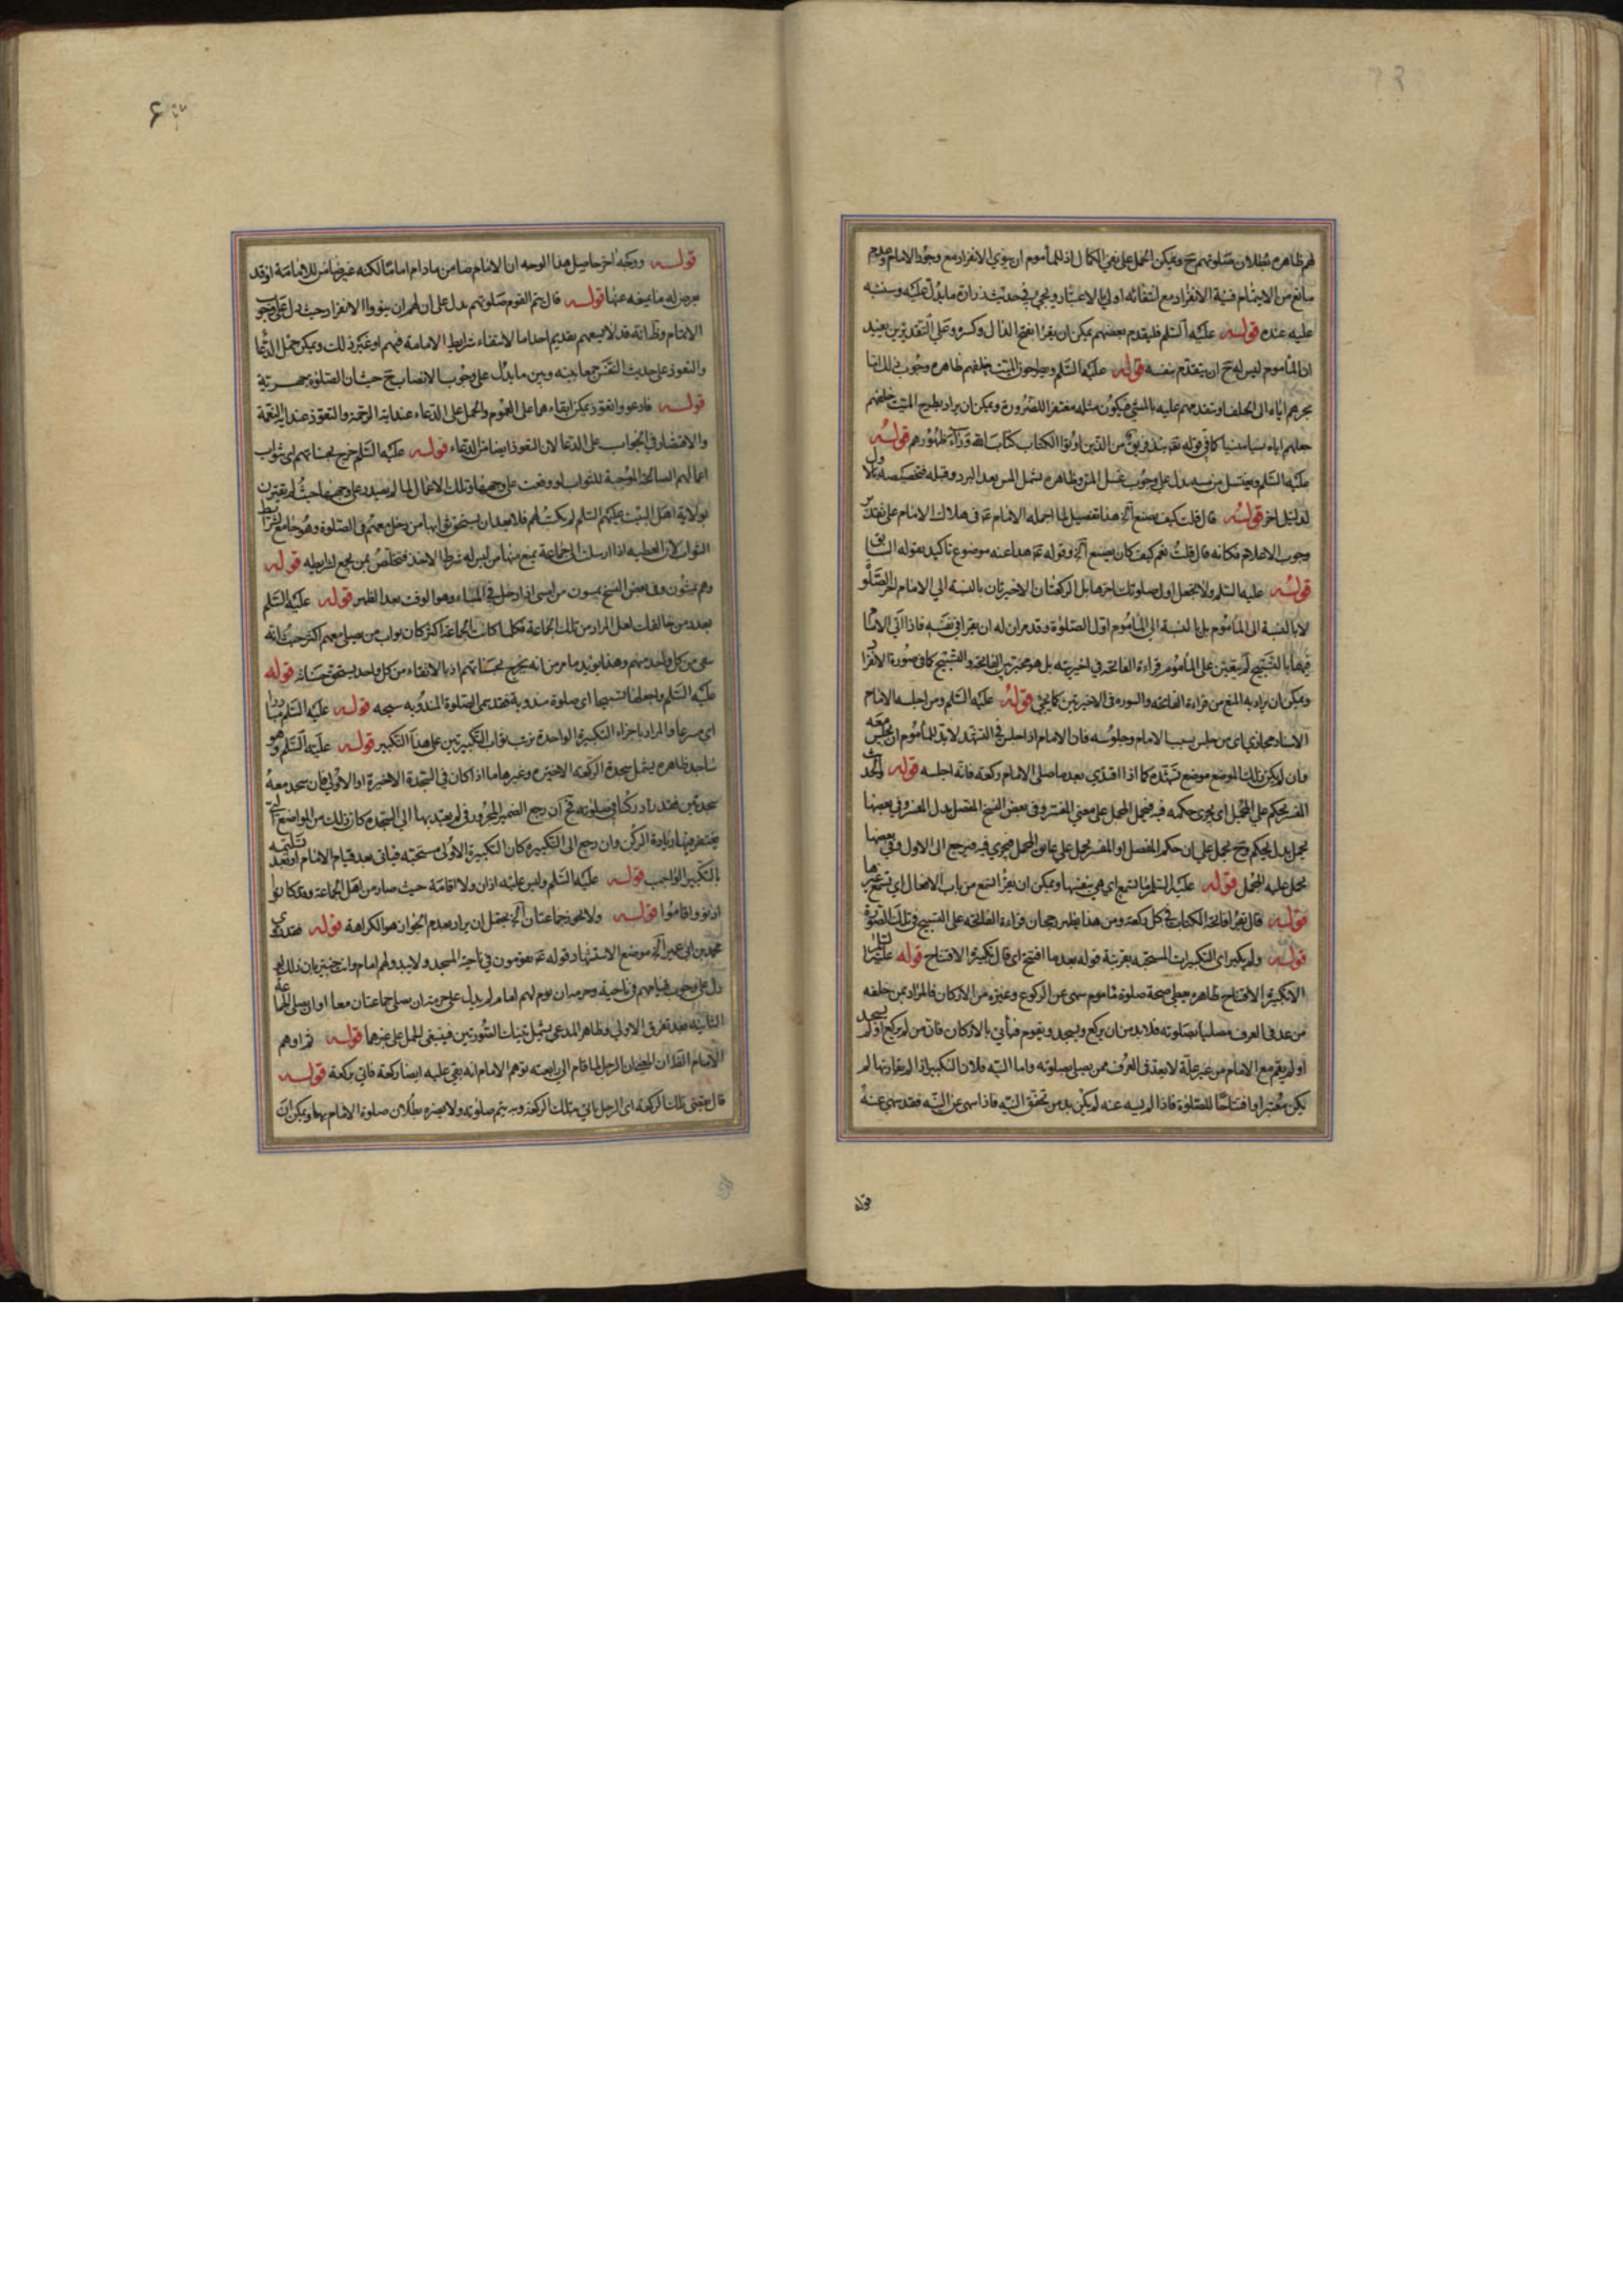 لهم ظاهره بطلان صلوتهم ح ويمكن الحمل على نفي الكمال اذ للمأموم ان ينوي الانفراد مع وجود الامام وعدم
مانع من الايتمام فنية الانفراد مع انتفائه اولى بالاعتبار ويجئ في حديث زرارة ما يدل عليه وسننبه
عليه عنده قوله عليه السلم فليقدم بعضهم يمكن ان يقرأ بفتح الدال وكسره وعلى التقديرين يفيد
ان المأموم ليس له ح ان يتقدم بنفسه قوله عليه السلم ويطرحون الميت خلفهم ظاهره وجوب ذلك اما
بجرهم اياه الى الخلف او بتقدمهم عليه بالمشي فيكون مثله مغتفرا للضرورة ويمكن ان يراد بطرح الميت خلفهم
جعلهم اياه نسيا منسيا كما في قوله تعه نبذ فريق من الذين اوتوا الكتاب كتاب الله وراء ظهورهم قوله
عليه السلم ويغتسل من مسه يدل على وجوب غسل المس وظاهره يشمل المس بعد البرد وقبله فتخصيصه بالاول
لدليل اخر قوله قال قلت كيف يصنع آه هذا تفصيل لما اجمله الامام ع في هلاك الامام على تقدير
وجوب الاعلام فكانه قال قلت نعم كيف كان يصنع آه وقوله ع هذا عنه موضوع تاكيد بقوله السابق
قوله عليه السلم ولا تجعل اول صلوتك اخرها بل الركعتان الاخيرتان بالنسبة الى الامام اخر الصلو
لا بالنسبة الى المأموم بل بالنسبة الى المأموم اول الصلوة وقد مر ان له ان يقرا في نفسه فاذا اتى الامام
فيها بالتسبيح لم يتعين على المأموم قراءة الفاتحة في اخيرتيه بل هو مخير بين الفاتحة والتسبيح كما في صورة الانفراد
ويمكن ان يراد به المنع من قراءة الفاتحه والسوره في الاخيرتين كما يجئ قوله عليه السلم ومن اجلسه الامام
الاسناد مجازي اى من جلس بسبب الامام وجلوسه فان الامام اذا جلس في التشهد لابد للمأموم ان يجلس معه
وان لم يكن ذلك الموضع موضع تشهده كما اذا اقتدى بعد ما صلى الامام ركعة فانه اجلسه قوله والحديث
المفسر يحكم على المجمل اى يجرى حكمه فيه فيحمل المجمل على معنى المفسر وفي بعض النسخ المفصل بدل المفسر وفي بعضها
يحمل بدل يحكم وح يحمل على ان حكم المفصل او المفسر يحمل على المجمل فيجرى فيه فيرجع الى الاول وفي بعضها
يحمل عليه المجمل قوله عليه السلم ما لتسمع اى هي بنفسها ويمكن ان يقرأ تسمع من باب الافعال اي تسمع غيرها
قوله قال تقرأ فاتحة الكتاب في كل ركعة ومن هذا يظهر رجحان قراءة الفاتحة على التسبيح في تلك الصورة
قوله ولم يكبر اى التكبيرات المستحبه بقرينة قوله بعد ما افتتح اى قال تكبيرة الافتتاح قوله
الا تكبيرة الافتتاح ظاهره يعطى صحة صلوة مأموم سهى عن الركوع وغيره من الاركان فالمراد بمن خلفه
من عد في العرف مصليا بصلوته فلابد من ان يركع ويسجد ويقوم فيأتي بالاركان فان من لم يركع او لم يسجد
او لم يقم مع الامام من غير علة لا يعد في العرف ممن يصلي بصلوته واما النيه فلان التكبير اذا لم يقارنها لم
يكن معتبرا وافتتاحا للصلوة فاذا لم يسه عنه لم يكن بد من تحقق النيه فاذا سهى عن النيه فقد سهى عنه
قوله
قوله ووجه اخر حاصل هذا الوجه ان الامام ضامن ما دام اماما لكنه غير ضامن للامامة اذ قد
يعرض له ما يمنعه عنها قوله قال يتم القوم صلوتهم يدل على ان لهم ان ينووا الانفراد حيث دل على وجوب
الاتمام وظ انه قد لا يمكنهم تقديم احد اما لانتفاء شرايط الامامة فيهم او غير ذلك ويمكن حمل الدعا
والتعوذ على حديث النفس جمعا بينه وبين ما يدل على وجوب الانصات ح حيث ان الصلوة جهرية
قوله فادعو واتعوذ يمكن ابقاءهما على العموم والحمل على الدعاء عند اية الرحمة والتعوذ عند اية النقمة
والاقتصار في الجواب على الدعا لان التعوذ ايضا من الدعاء قوله عليه السلم خرج بحسناتهم اى بثواب
اعمالهم الصالحة الموجبة للثواب لو وقعت على وجهها وتلك الاعمال لما لم يصدر على وجهها حيث لم يقترن
بولاية اهل البيت عليهم السلم لم يكتب لهم فلا يبعد ان يستحق ثوابها من دخل معهم في الصلوة وهو جامع لشرائط
الثواب لان العطيه اذا ارسلت الى جماعة يمنع منها من ليس له شرط الاخذ فتخلص لمن يجمع شرائطه قوله
وهم يمسون وفي بعض النسخ يمسون من امسى اذا دخل في المساء وهو الوقت بعد الظهر قوله عليه السلم
بعدد من خالفك لعل المراد من تلك الجماعة فكلما كانت الجماعة اكثر كان ثواب من يصلي معهم اكثر حيث انه
سعى من كل واحد منهم وهذا يؤيد ما مر من انه يخرج بحسناتهم اذ بالانتفاء من كل واحد يستحق حسناته قوله
عليه السلم واجعلها تسبيحا اى صلوة مندوبة فقد يسمى الصلوة المندوبه سبحه قوله عليه السلم مبادرا
اى مسرعا والمراد باجزاء التكبيرة الواحدة ترتب ثواب التكبيرتين على هذا التكبير قوله عليه السلم وهو
ساجد ظاهره يشمل سجدة الركعة الاخيره وغيرها ما اذا كان في السجدة الاخيرة او الاولى فان سجد معه
سجدتين فقد زاد ركنا في صلوته فح ان رجع الضمير المجرور في لم يعتد بها الى السجده كان ذلك من المواضع التي
يغتفر فيها زيادة الركن وان رجع الى التكبيره كان التكبيرة الاولى مستحبه فياتى بعد قيام الامام او بعد تسليمه
بالتكبير الواجب قوله عليه السلم وليس عليه اذان ولا اقامة حيث صار من اهل الجماعة وقد كانوا
اذنوا واقاموا قوله ولا يجوز جماعتان آه يحتمل ان يراد بعدم الجواز هو الكراهة قوله فقد روى
محمد بن ابي عمير آه موضع الاستشهاد قوله ع يقومون في ناحية المسجد ولا يبدو لهم امام وانت خبير بان ذلك لو
دل على وجوب قيامهم في ناحية وحرمه ان يؤم لهم امام لم يدل على حرمة ان يصلي جماعتان معا او ان يصلي الجماعة
الثانيه بعد تفرق الاولى وظاهر المدعى يشمل تينك الصورتين فينبغي الحمل على غيرهما قوله ثم اوهم
الامام القذان الرجل لما قام الى رابعته توهم الامام انه بقى عليه ايضا ركعة فاتى بركعة قوله
قال يقضي تلك الركعة اى الرجل يأتي بتلك الركعة وبه يتم صلوته ولا يضره بطلان صلوة الامام بها ويمكن ان